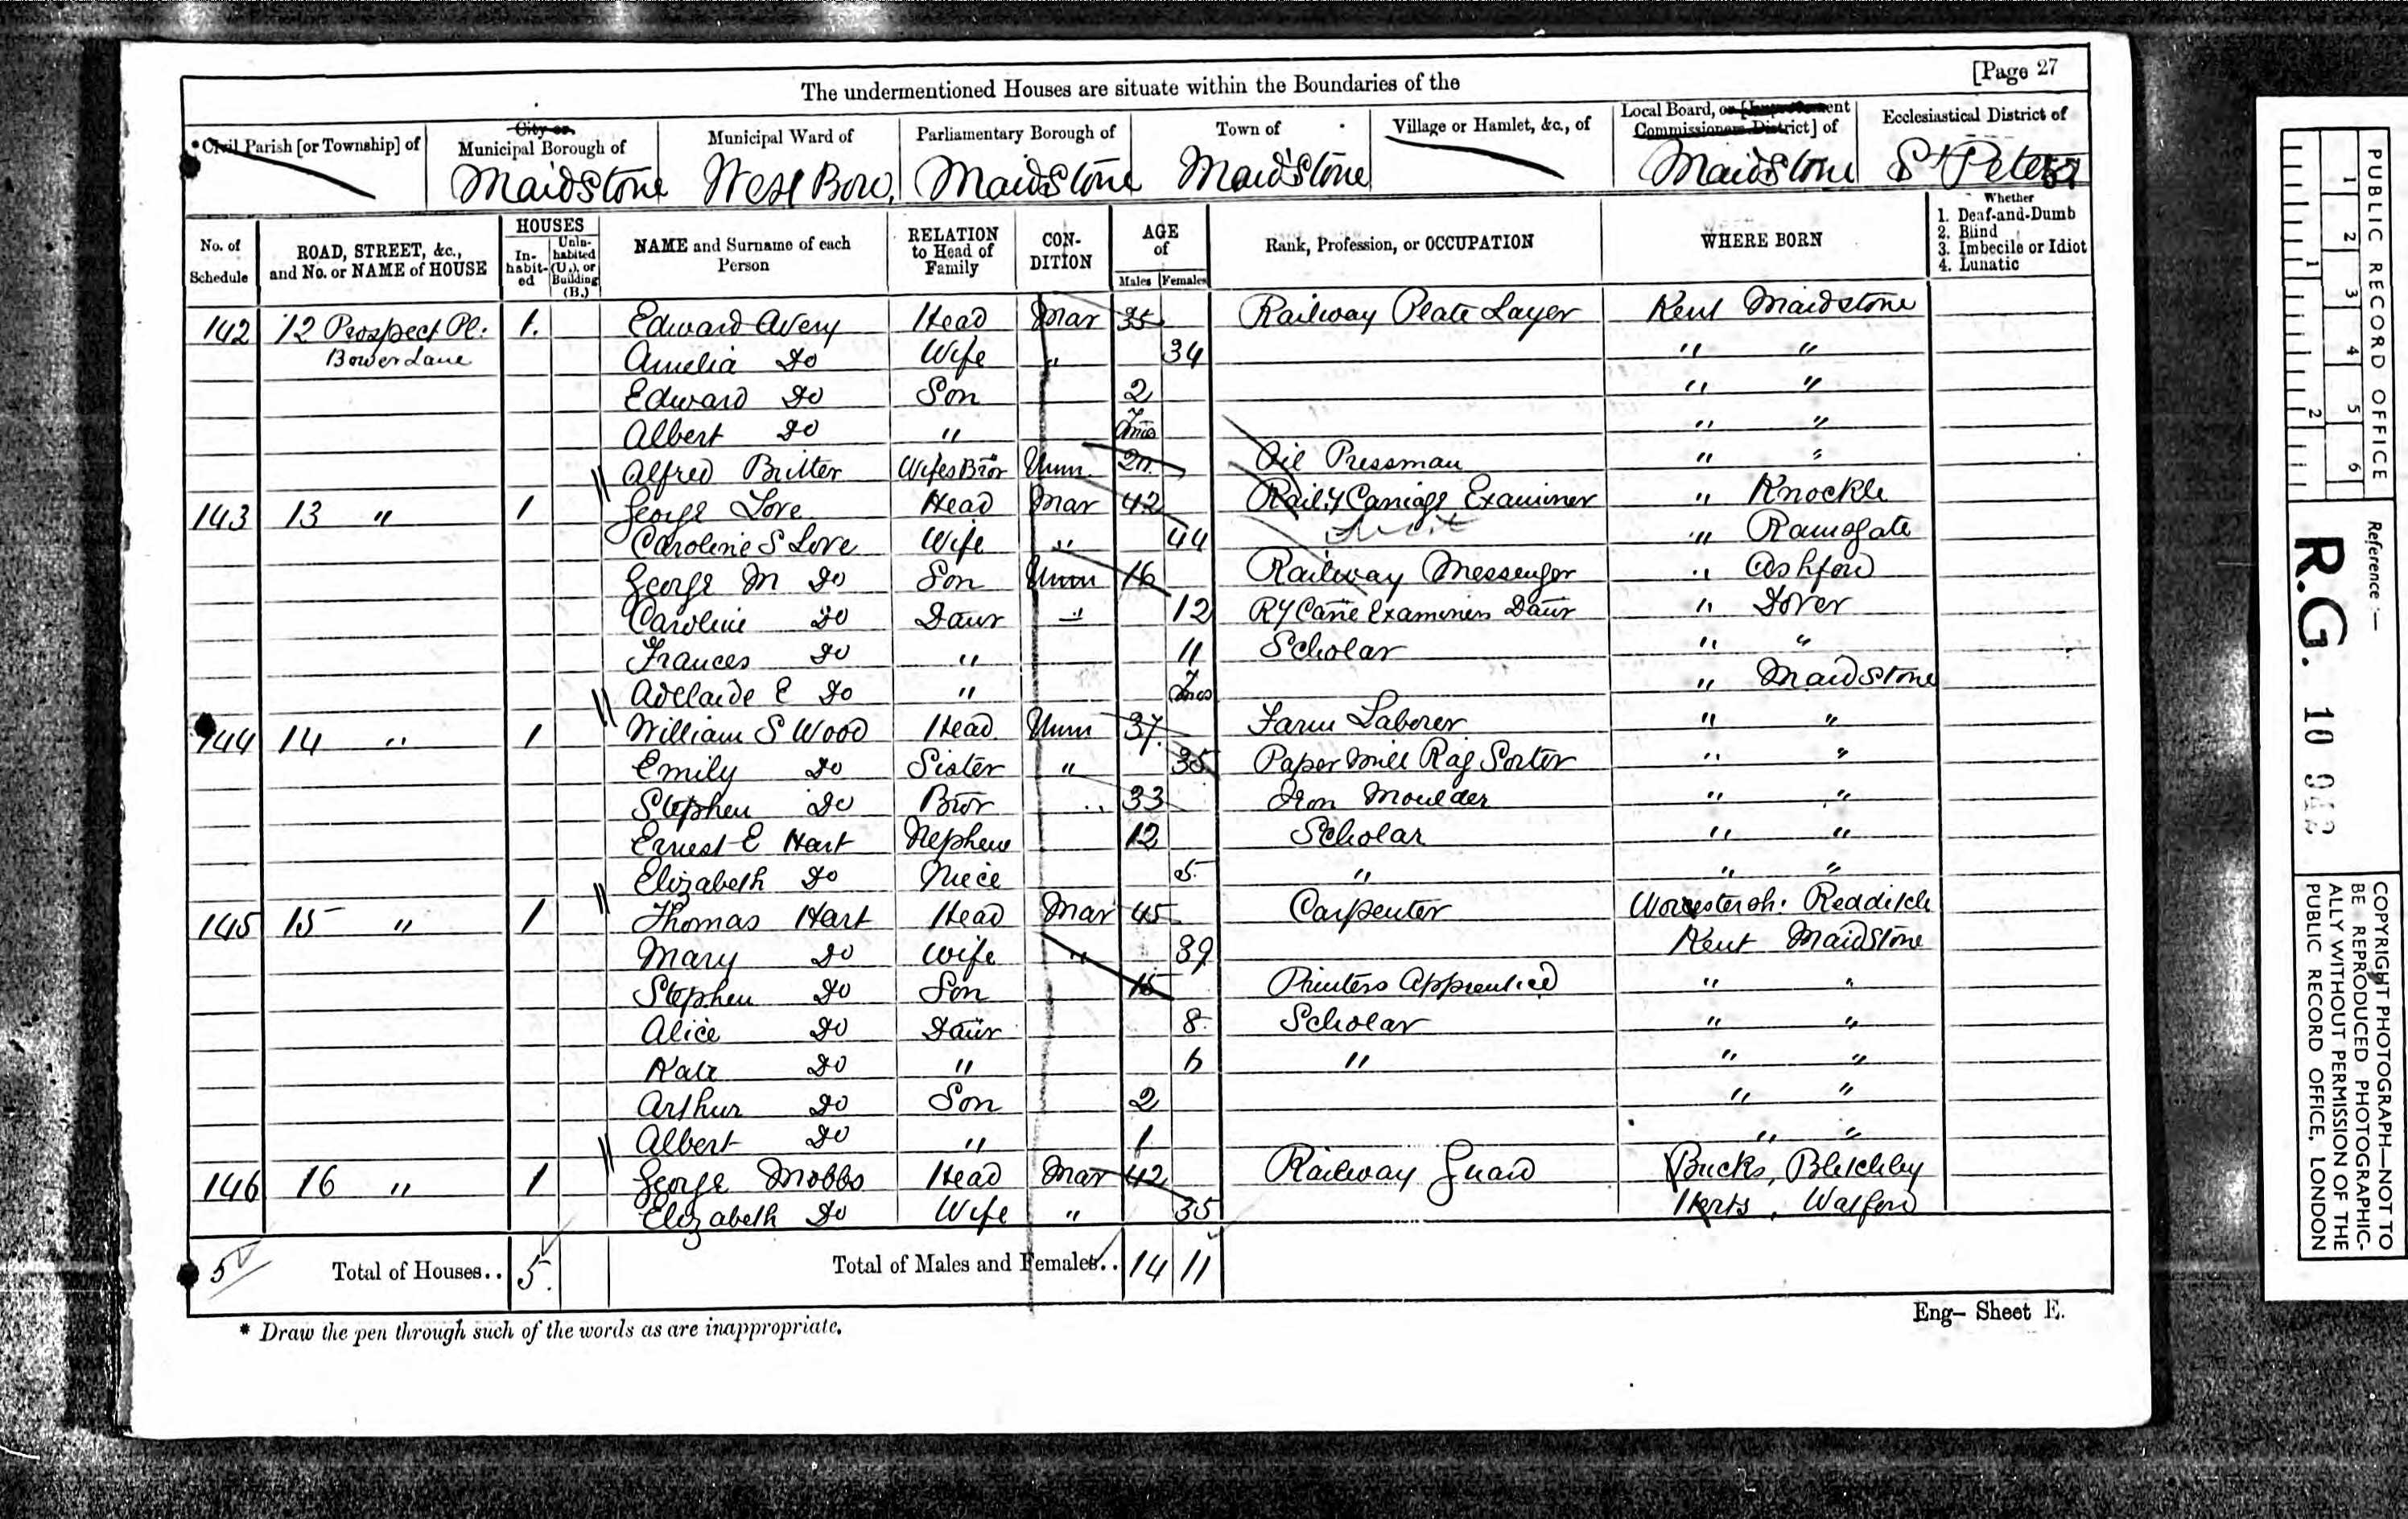 [Page 27
The undermentioned Houses are situate within the Boundaries of the
*Civil Parish [or Township] of
City or Municipal Borough of Maidstone
Municipal Ward of West Boro.
Parliamentary Borough of Maidstone
Town of Maidstone
Village or Hamlet, &c., of
Local Board, or [Improvement Commissioners District] of Maidstone
Ecclesiastical District of St Peters
No. of Schedule
ROAD, STREET, &c., and No. or NAME of HOUSE
HOUSES
Inhabited
Uninhabited (U.), or Building (B.)
NAME and Surname of each Person
RELATION to Head of Family
CONDITION
AGE of
Males
Females
Rank, Profession, or OCCUPATION
WHERE BORN
Whether
1. Deaf-and-Dumb
2. Blind
3. Imbecile or Idiot
4. Lunatic
142 12 Prospect Pl. 1. Edward Avery Head Mar 35 Railway Plate Layer Kent Maidstone
Bower Lane Amelia Do Wife " 34 " "
Edward Do Son 2 " "
Albert Do " 7 mos " "
Alfred Britter Wifes Bror Unm. 20 Oil Pressman " "
143 13 " 1 George Love Head Mar 42 Raily Carriage Examiner " Knockle
Caroline S Love Wife " 44 " Ramsgate
George M Do Son Unm 16 Railway Messenger " Ashford
Caroline Do Daur " 12 Ry Carre Examiners Daur " Dover
Frances Do " 11 Scholar " "
Adelaide E Do " 7 mos " Maidstone
144 14 " 1 William S Wood Head Unm 37 Farm Laborer " "
Emily Do Sister " 35 Paper Mill Rag Sorter " "
Stephen Do Bror " 33 Iron Moulder " "
Ernest E Hart Nephew 12 Scholar " "
Elizabeth Do Niece 5 " " "
145 15 " 1 Thomas Hart Head Mar 45 Carpenter Worcestersh: Redditch
Mary Do Wife " 39 Kent Maidstone
Stephen Do Son 15 Printers Apprentice " "
Alice Do Daur 8 Scholar " "
Kate Do " 6 " " "
Arthur Do Son 2 " "
Albert Do " 1 " "
146 16 " 1 George Mobbs Head Mar 42 Railway Guard Bucks, Bletchley
Elizabeth Do Wife " 35 Herts, Watford
5 Total of Houses.. 5. Total of Males and Females.. 14 11
* Draw the pen through such of the words as are inappropriate.
Eng– Sheet E.
PUBLIC RECORD OFFICE
1 2 3 4 5 6
1 2
Reference :—
R.G. 10 942
COPYRIGHT PHOTOGRAPH—NOT TO
BE REPRODUCED PHOTOGRAPHIC-
ALLY WITHOUT PERMISSION OF THE
PUBLIC RECORD OFFICE, LONDON